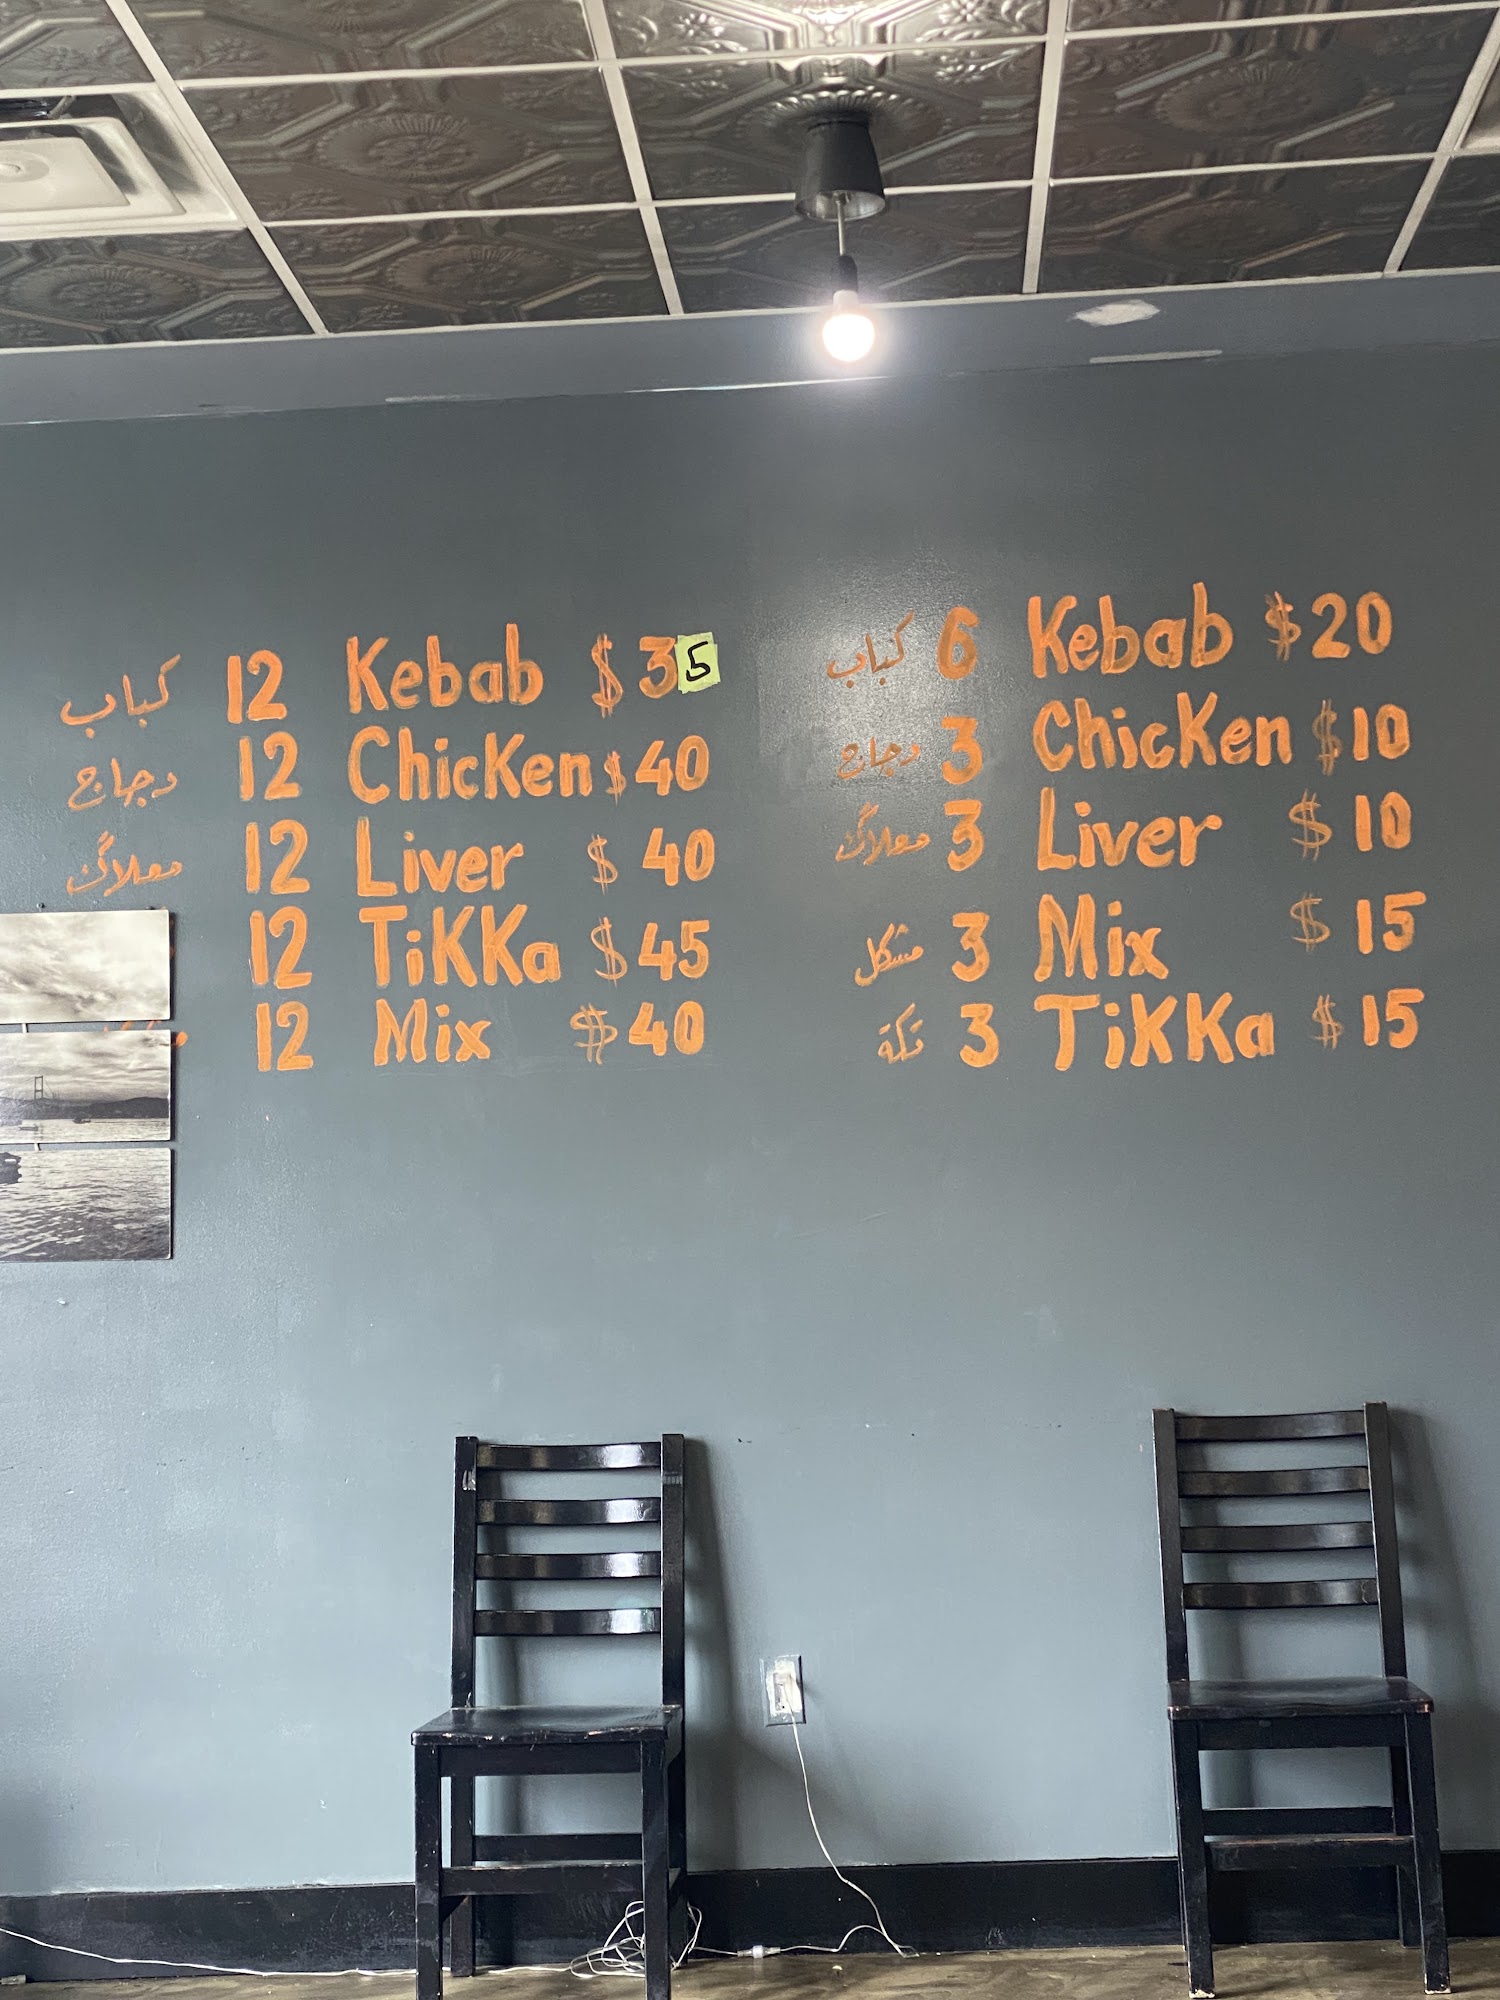 كباب 12 Kebab $ 35
دجاج 12 ChicKen $ 40
معلاگ 12 Liver $ 40
12 TiKKa $ 45
12 Mix $ 40
كباب 6 Kebab $ 20
دجاج 3 ChicKen $ 10
معلاگ 3 Liver $ 10
مشكل 3 Mix $ 15
تكة 3 TiKKa $ 15